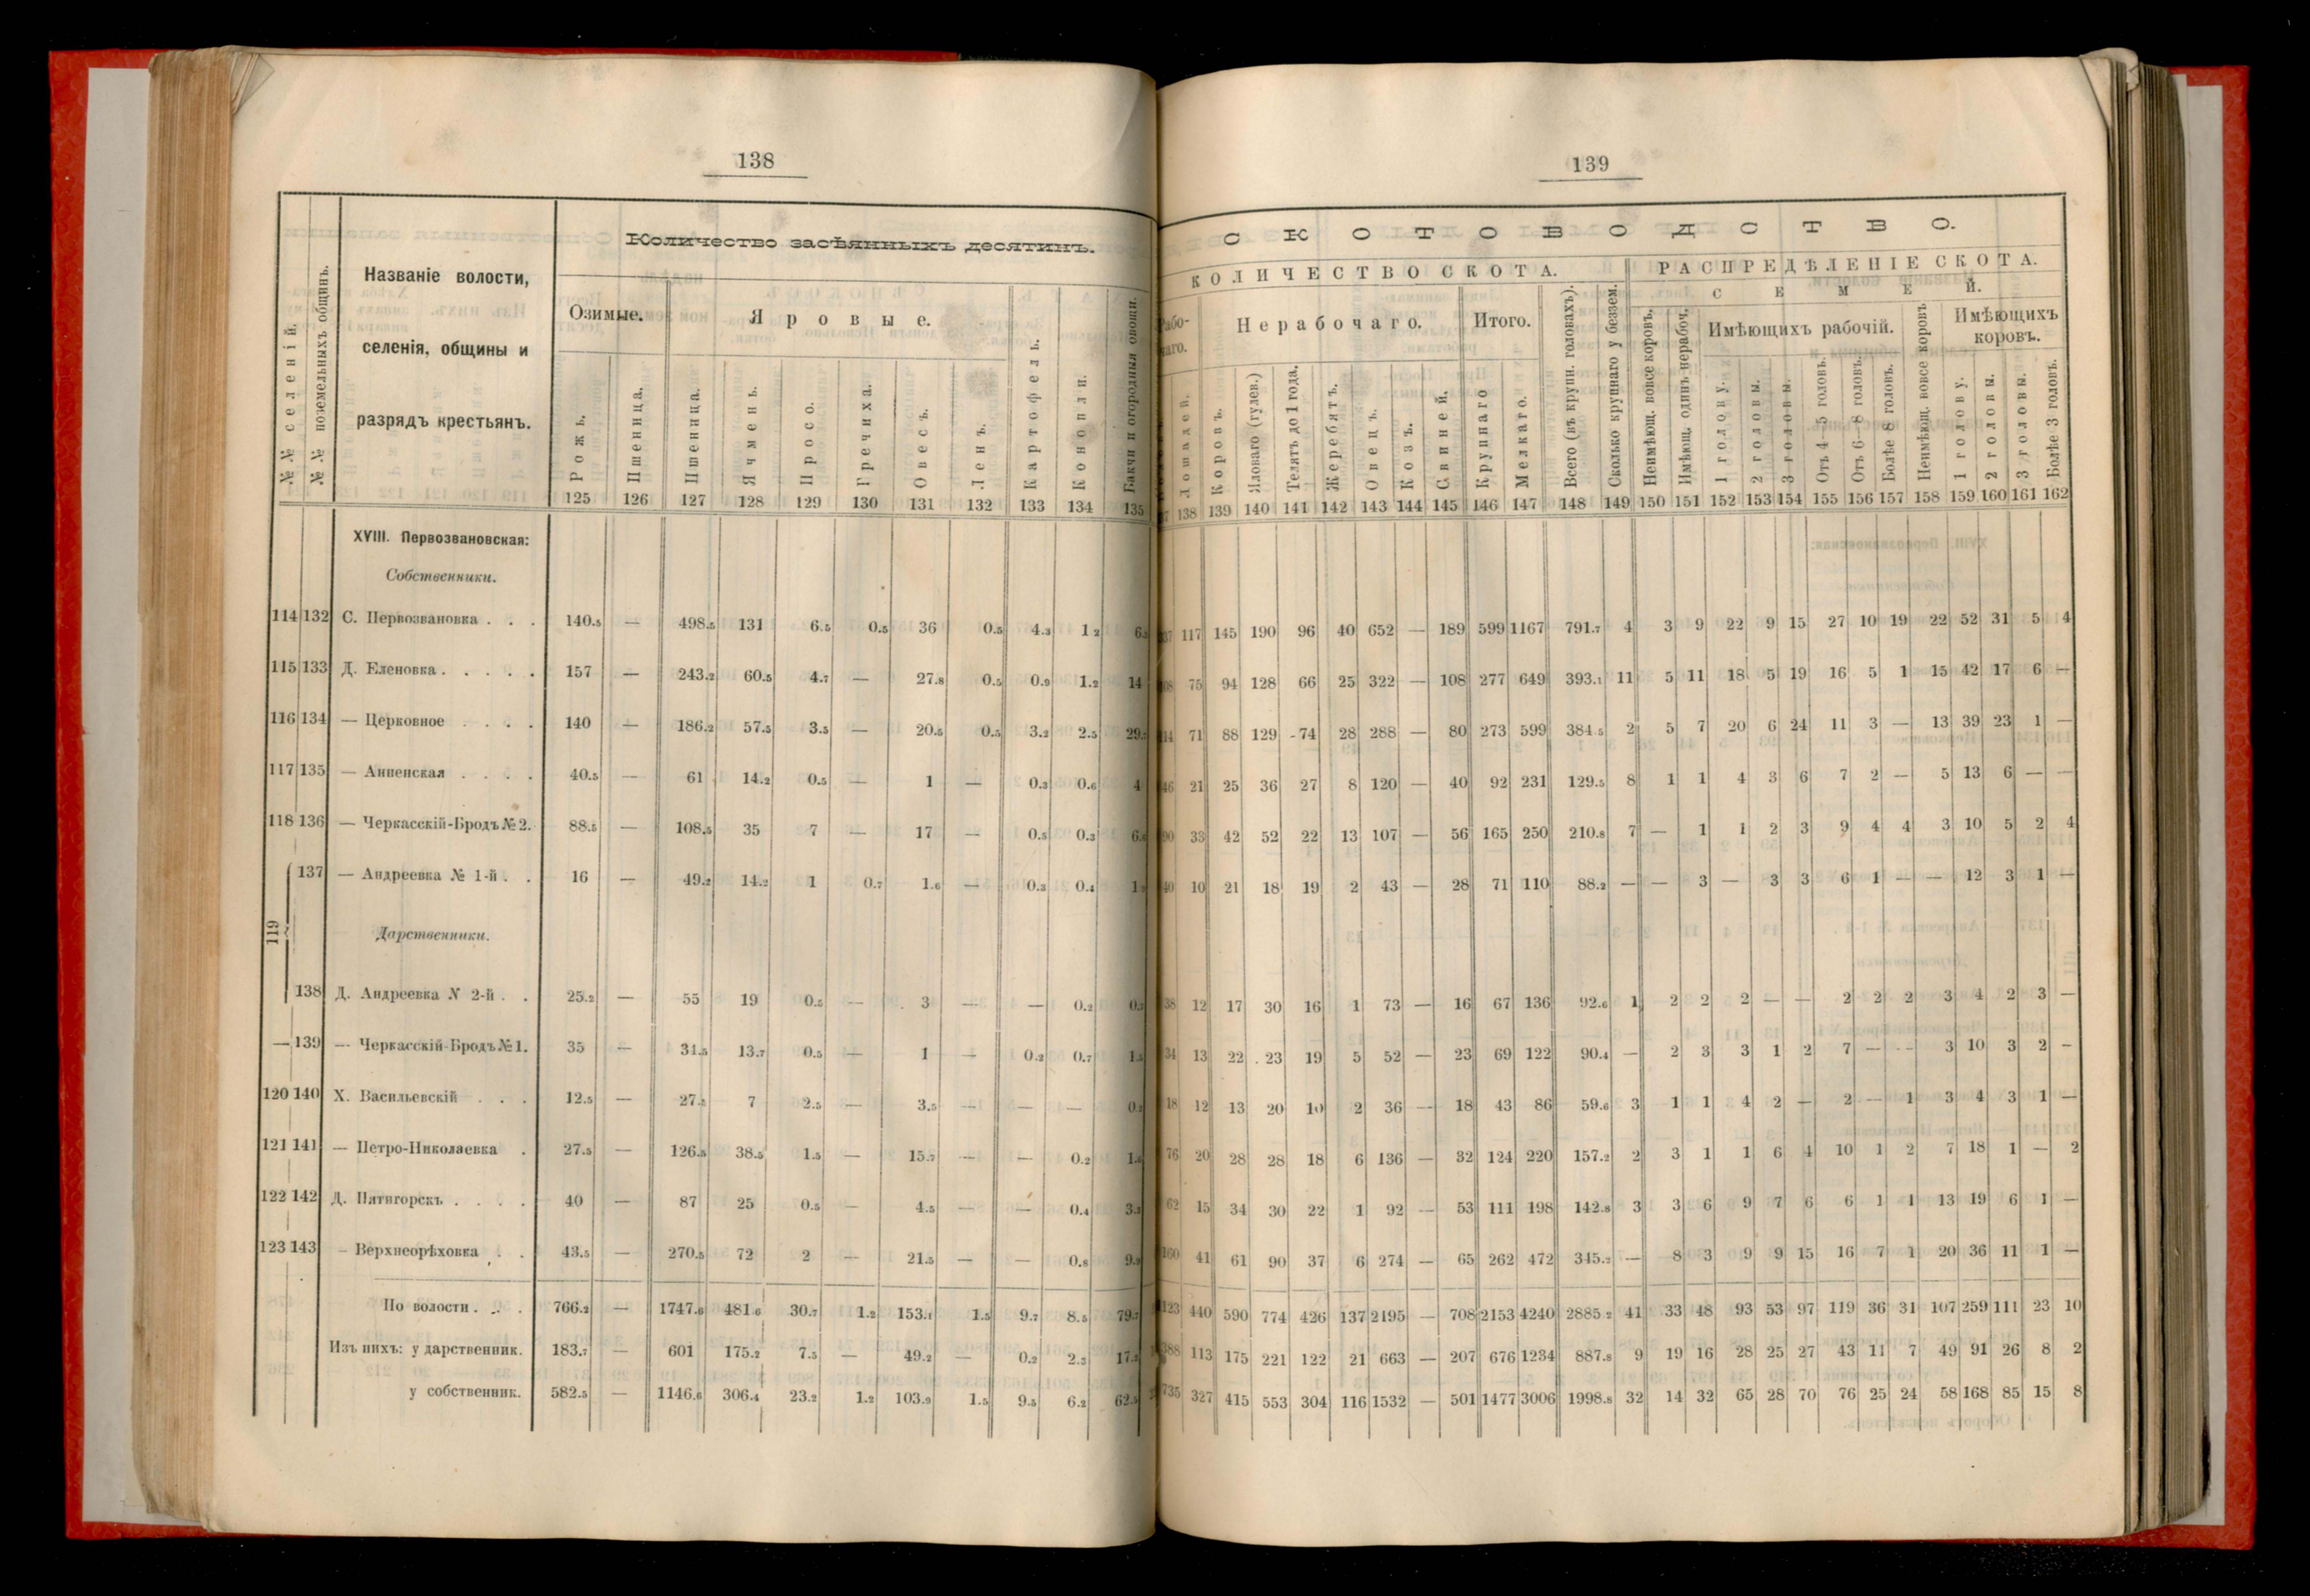 138
Количество засѣянныхъ десятинъ.
№№ селеній.
№№ поземельныхъ общинъ.
Названіе волости,
селенія, общины и
разрядъ крестьянъ.
Озимые.
Яровые.
Рожь.
Пшеница.
Пшеница.
Ячмень.
Просо.
Гречиха.
Овесъ.
Ленъ.
Картофель.
Конопли.
Бакчи и огородныя овощи.
125 126 127 128 129 130 131 132 133 134 135
XVIII. Первозвановская:
Собственники.
114 132 С. Первозвановка . . . 140.5 — 498.5 131 6.5 0.5 36 0.5 4.3 1 2
115 133 Д. Еленовка . . . . . 157 — 243.2 60.5 4.7 — 27.8 0.5 0.9 1.2 14
116 134 — Церковное . . . . 140 — 186.2 57.5 3.5 — 20.5 0.5 3.2 2.5
117 135 — Анненская . . . . 40.5 — 61 14.2 0.5 — 1 — 0.3 0.6 4
118 136 — Черкасскій-Бродъ №2. 88.5 — 108.5 35 7 — 17 — 0.5 0.3
119
137 — Андреевка № 1-й . . 16 — 49.2 14.2 1 0.7 1.6 — 0.3 0.4
Дарственники.
138 Д. Андреевка N 2-й . . 25.2 — 55 19 0.5 — 3 — — 0.2
— 139 — Черкасскій-Бродъ №1. 35 — 31.5 13.7 0.5 — 1 — 0.2 0.7
120 140 Х. Васильевскій . . . 12.5 — 27.5 7 2.5 — 3.5 — — —
121 141 — Петро-Николаевка . 27.5 — 126.5 38.5 1.5 — 15.7 — — 0.2
122 142 Д. Пятигорскъ . . . . 40 — 87 25 0.5 — 4.5 — — 0.4
123 143 – Верхнеорѣховка . . 43.5 — 270.5 72 2 — 21.5 — — 0.8
По волости . . . 766.2 — 1747.6 481 6 30.7 1.2 153.1 1.5 9.7 8.5 79.7
Изъ нихъ: у дарственник. 183.7 — 601 175.2 7.5 — 49.2 — 0.2 2.3 17.2
у собственник. 582.5 — 1146.6 306.4 23.2 1.2 103.9 1.5 9.5 6.2 62.5
139
СКОТОВОДСТВО.
КОЛИЧЕСТВО СКОТА.
РАСПРЕДѢЛЕНІЕ СКОТА.
СЕМЕЙ.
Нерабочаго.
Итого.
Имѣющихъ рабочій.
Имѣющихъ
коровъ.
Лошадей.
Коровъ.
Яловаго (гулев.)
Телятъ до 1 года.
Жеребятъ.
Овецъ.
Козъ.
Свиней.
Крупнаго
Мелкаго.
Всего (въ крупн. головахъ).
Сколько крупнаго у беззем.
Неимѣющ. вовсе коровъ.
Имѣющ. одинъ нерабоч.
1 голову.
2 головы.
3 головы.
Отъ 4—5 головъ.
Отъ 6—8 головъ.
Болѣе 8 головъ.
Неимѣющ. вовсе коровъ
1 голову.
2 головы.
3 головы.
Болѣе 3 головъ.
138 139 140 141 142 143 144 145 146 147 148 149 150 151 152 153 154 155 156 157 158 159 160 161 162
117 145 190 96 40 652 — 189 599 1167 791.7 4 3 9 22 9 15 27 10 19 22 52 31 5 4
75 94 128 66 25 322 — 108 277 649 393.1 11 5 11 18 5 19 16 5 1 15 42 17 6 —
71 88 129 74 28 288 — 80 273 599 384 5 2 5 7 20 6 24 11 3 — 13 39 23 1 —
46 21 25 36 27 8 120 — 40 92 231 129.5 8 1 1 4 3 6 7 2 — 5 13 6 — —
90 33 42 52 22 13 107 — 56 165 250 210.8 7 — 1 1 2 3 9 4 4 3 10 5 2 4
40 10 21 18 19 2 43 — 28 71 110 88.2 — — 3 — 3 3 6 1 — — 12 3 1 —
38 12 17 30 16 1 73 — 16 67 136 92.6 1 2 2 2 — — 2 2 2 3 4 2 3 —
34 13 22 23 19 5 52 — 23 69 122 90.4 — 2 3 3 1 2 7 — — 3 10 3 2 –
18 12 13 20 10 2 36 — 18 43 86 59.6 3 1 1 4 2 — 2 — 1 3 4 3 1 —
76 20 28 28 18 6 136 — 32 124 220 157.2 2 3 1 1 6 4 10 1 2 7 18 1 — 2
62 15 34 30 22 1 92 — 53 111 198 142.8 3 3 6 9 7 6 6 1 1 13 19 6 1 —
160 41 61 90 37 6 274 — 65 262 472 345.2 — 8 3 9 9 15 16 7 1 20 36 11 1 —
1123 440 590 774 426 137 2195 — 708 2153 4240 2885 2 41 33 48 93 53 97 119 36 31 107 259 111 23 10
388 113 175 221 122 21 663 — 207 676 1234 887.8 9 19 16 28 25 27 43 11 7 49 91 26 8 2
735 327 415 553 304 116 1532 — 501 1477 3006 1998.8 32 14 32 65 28 70 76 25 24 58 168 85 15 8